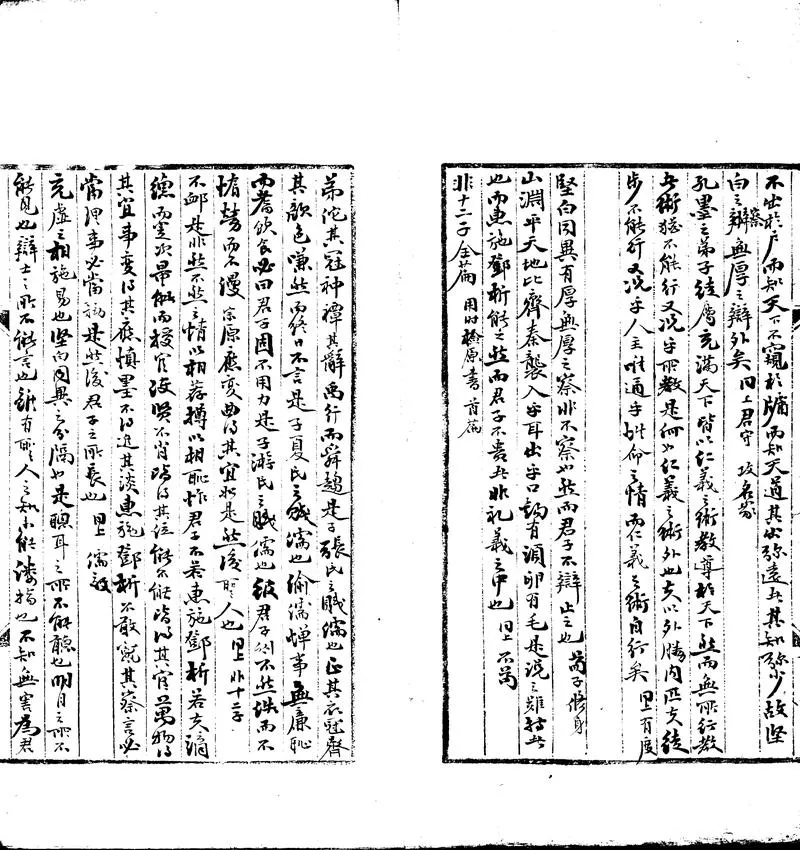 不出於戶而知天下不窺於牖而知天道其出弥遠其知弥少故堅
白之察無厚之辯外矣 同上君守
孔墨之弟子徒屬充滿天下皆以仁義之術教導於天下然而無所行教
者術猶不能行又況乎所教是何也仁義之術外也夫以外勝內匹夫徒
步不能行又況乎人主唯通乎性命之情而仁義之術自行矣 同上有度
堅白同異有厚無厚之察非不察也然而君子不辯止之也 荀子修身
山淵平天地比齊秦襲入乎耳出乎口鉤有須卵有毛是說之難持者
也而惠施鄧析能之然而君子不貴者非禮義之中也 同上不苟
非十二子全篇 用時檢原書首篇
弟佗其冠衶禫其辭禹行而舜趨是子張氏之賤儒也正其衣冠齊
其顏色嗛然而終日不言是子夏氏之賤儒也偷儒憚事無廉恥
而耆飲食必曰君子固不用力是子游氏之賤儒也彼君子則不然佚而不
惰勞而不漫宗原應變曲得其宜如是然後聖人也 同上非十二子
不卹是非然不然之情以相荐撙以相恥怍君子不若惠施鄧析若夫謫
德而定次量能而授官使賢不肖皆得其位能不能皆得其官萬物得
其宜事變得其應慎墨不得進其談惠施鄧析不敢竄其察言必
當理事必當務是然後君子之所長也 同上儒效
充虛之相施易也堅白同異之分隔也是聰耳之所不能聽也明目之所不
能見也辯士之所不能言也雖有聖人之知未能僂指也不知無害為君